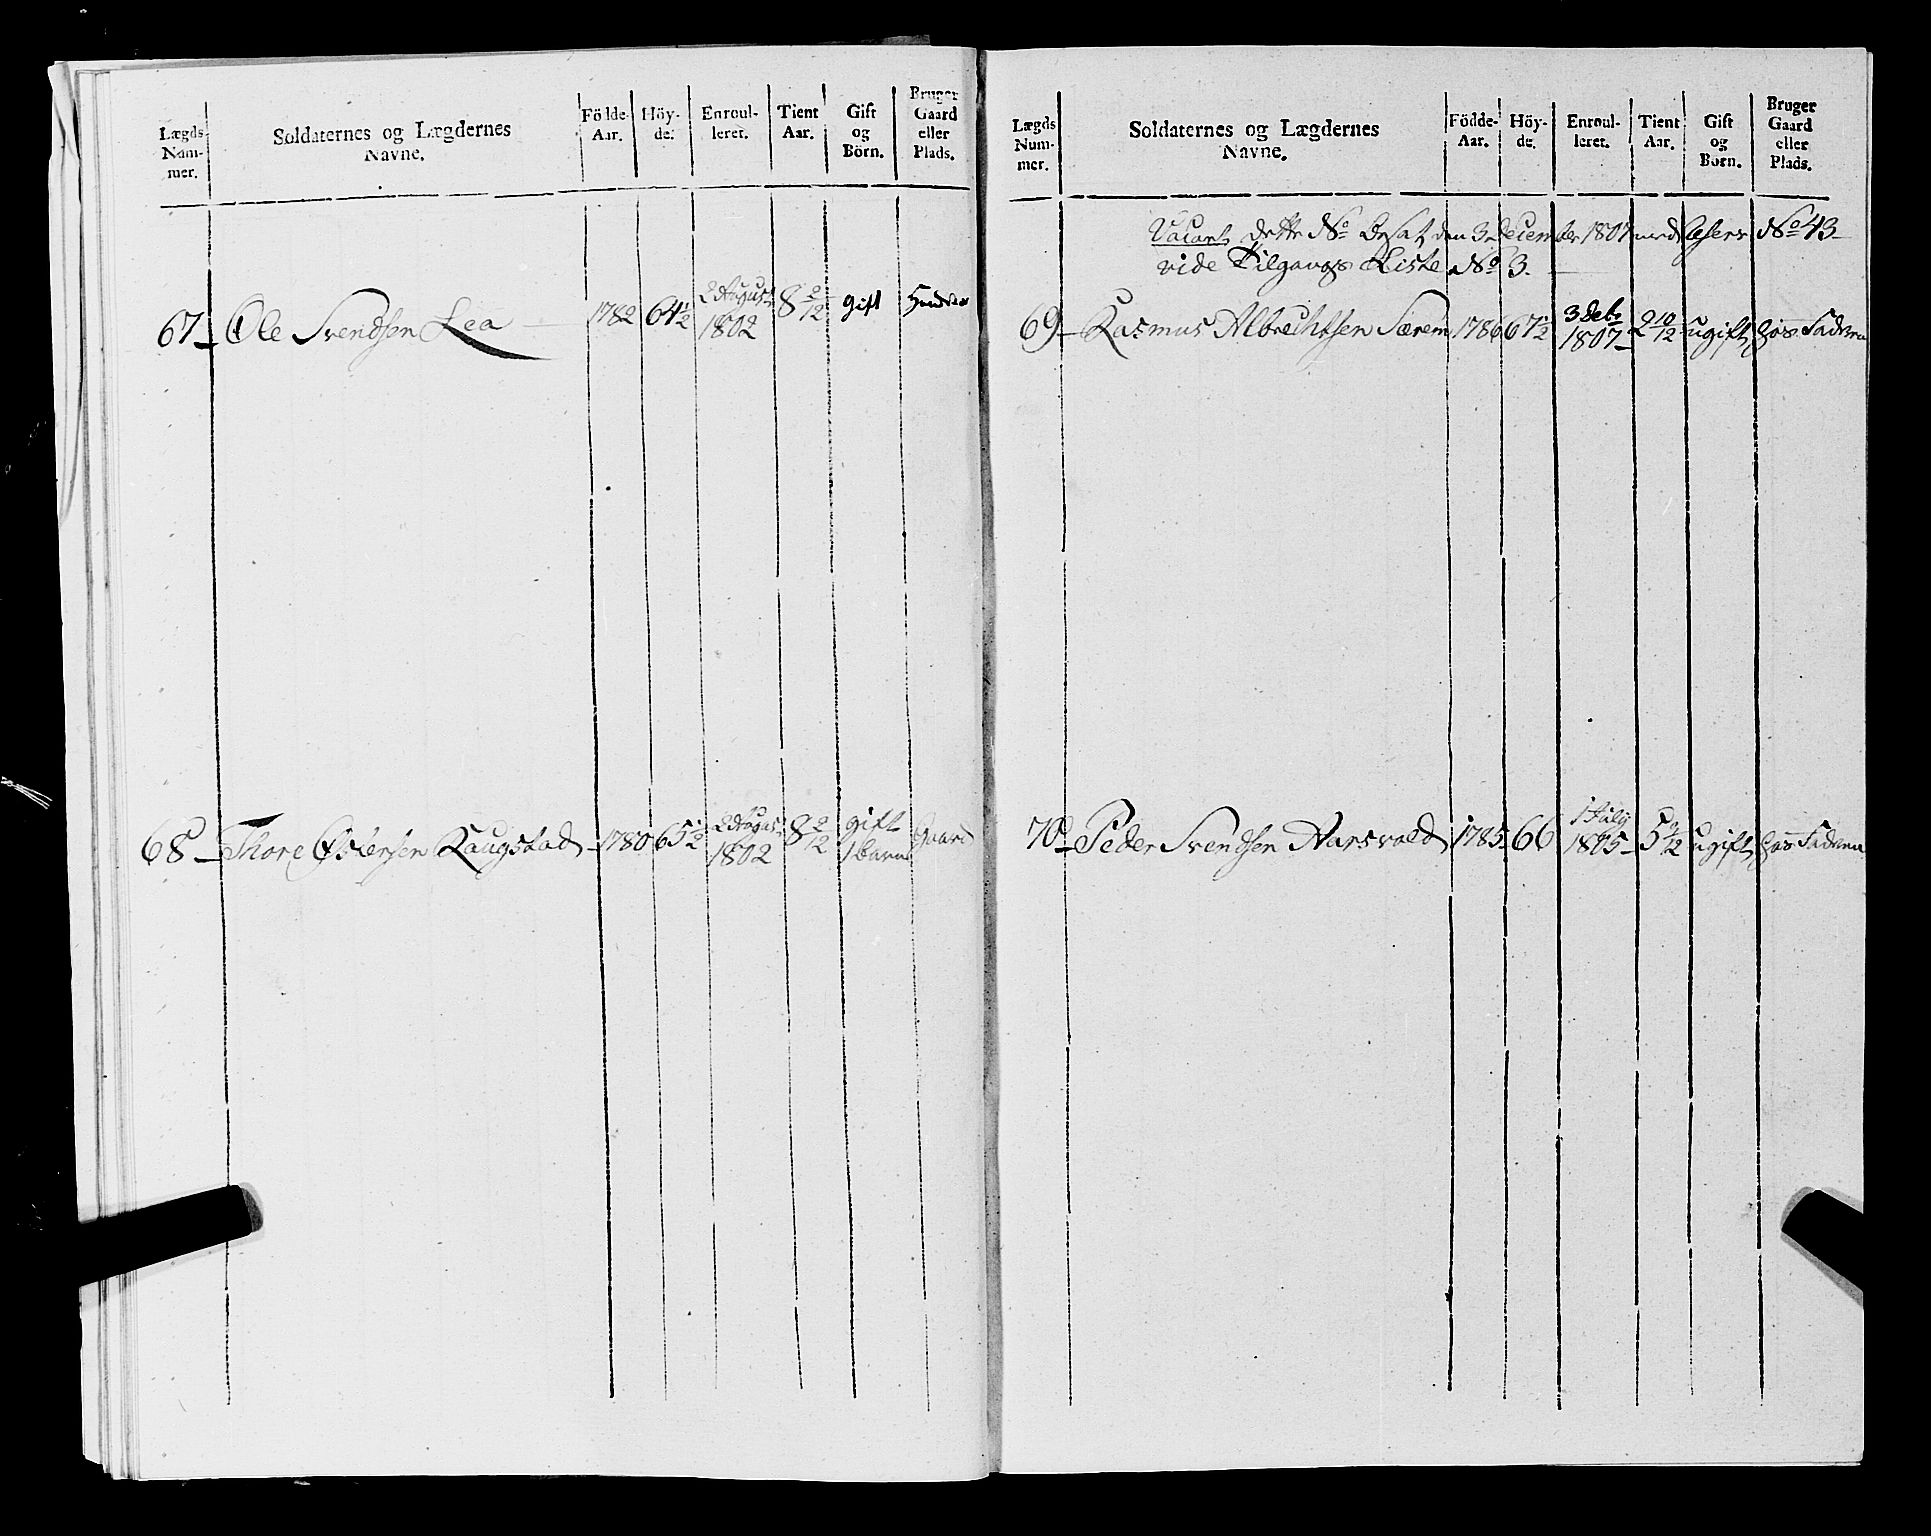 Lægds Num- mer. | Soldaternes og Lægdernes Navne. | Födde- Aar. | Höy- de. | Enroul- leret. | Tient Aar. | Gift og Börn. | Bruger Gaard eller Plads.
67 Ole Svendsen Lea 1782 64½ 2 August 1802 8 2/12 gift
68 Thore Kaugstad 1780 65½ 2 August 1802 8 2/12 gift 1 barn Gaard
Lægds Num- mer. | Soldaternes og Lægdernes Navne. | Födde- Aar. | Höy- de. | Enroul- leret. | Tient Aar. | Gift og Börn. | Bruger Gaard eller Plads.
Vacant dette No besat den 3 December 1807 med No 43
vide Tilgangs Liste No 3
69 Rasmus Albrechtsen Særem 1786 67½ 3 Debr 1807 2 10/12 ugift hos Faderen
70 Peder Svendsen Aarsvold 1785 66 1 July 1805 ugift hos Faderen